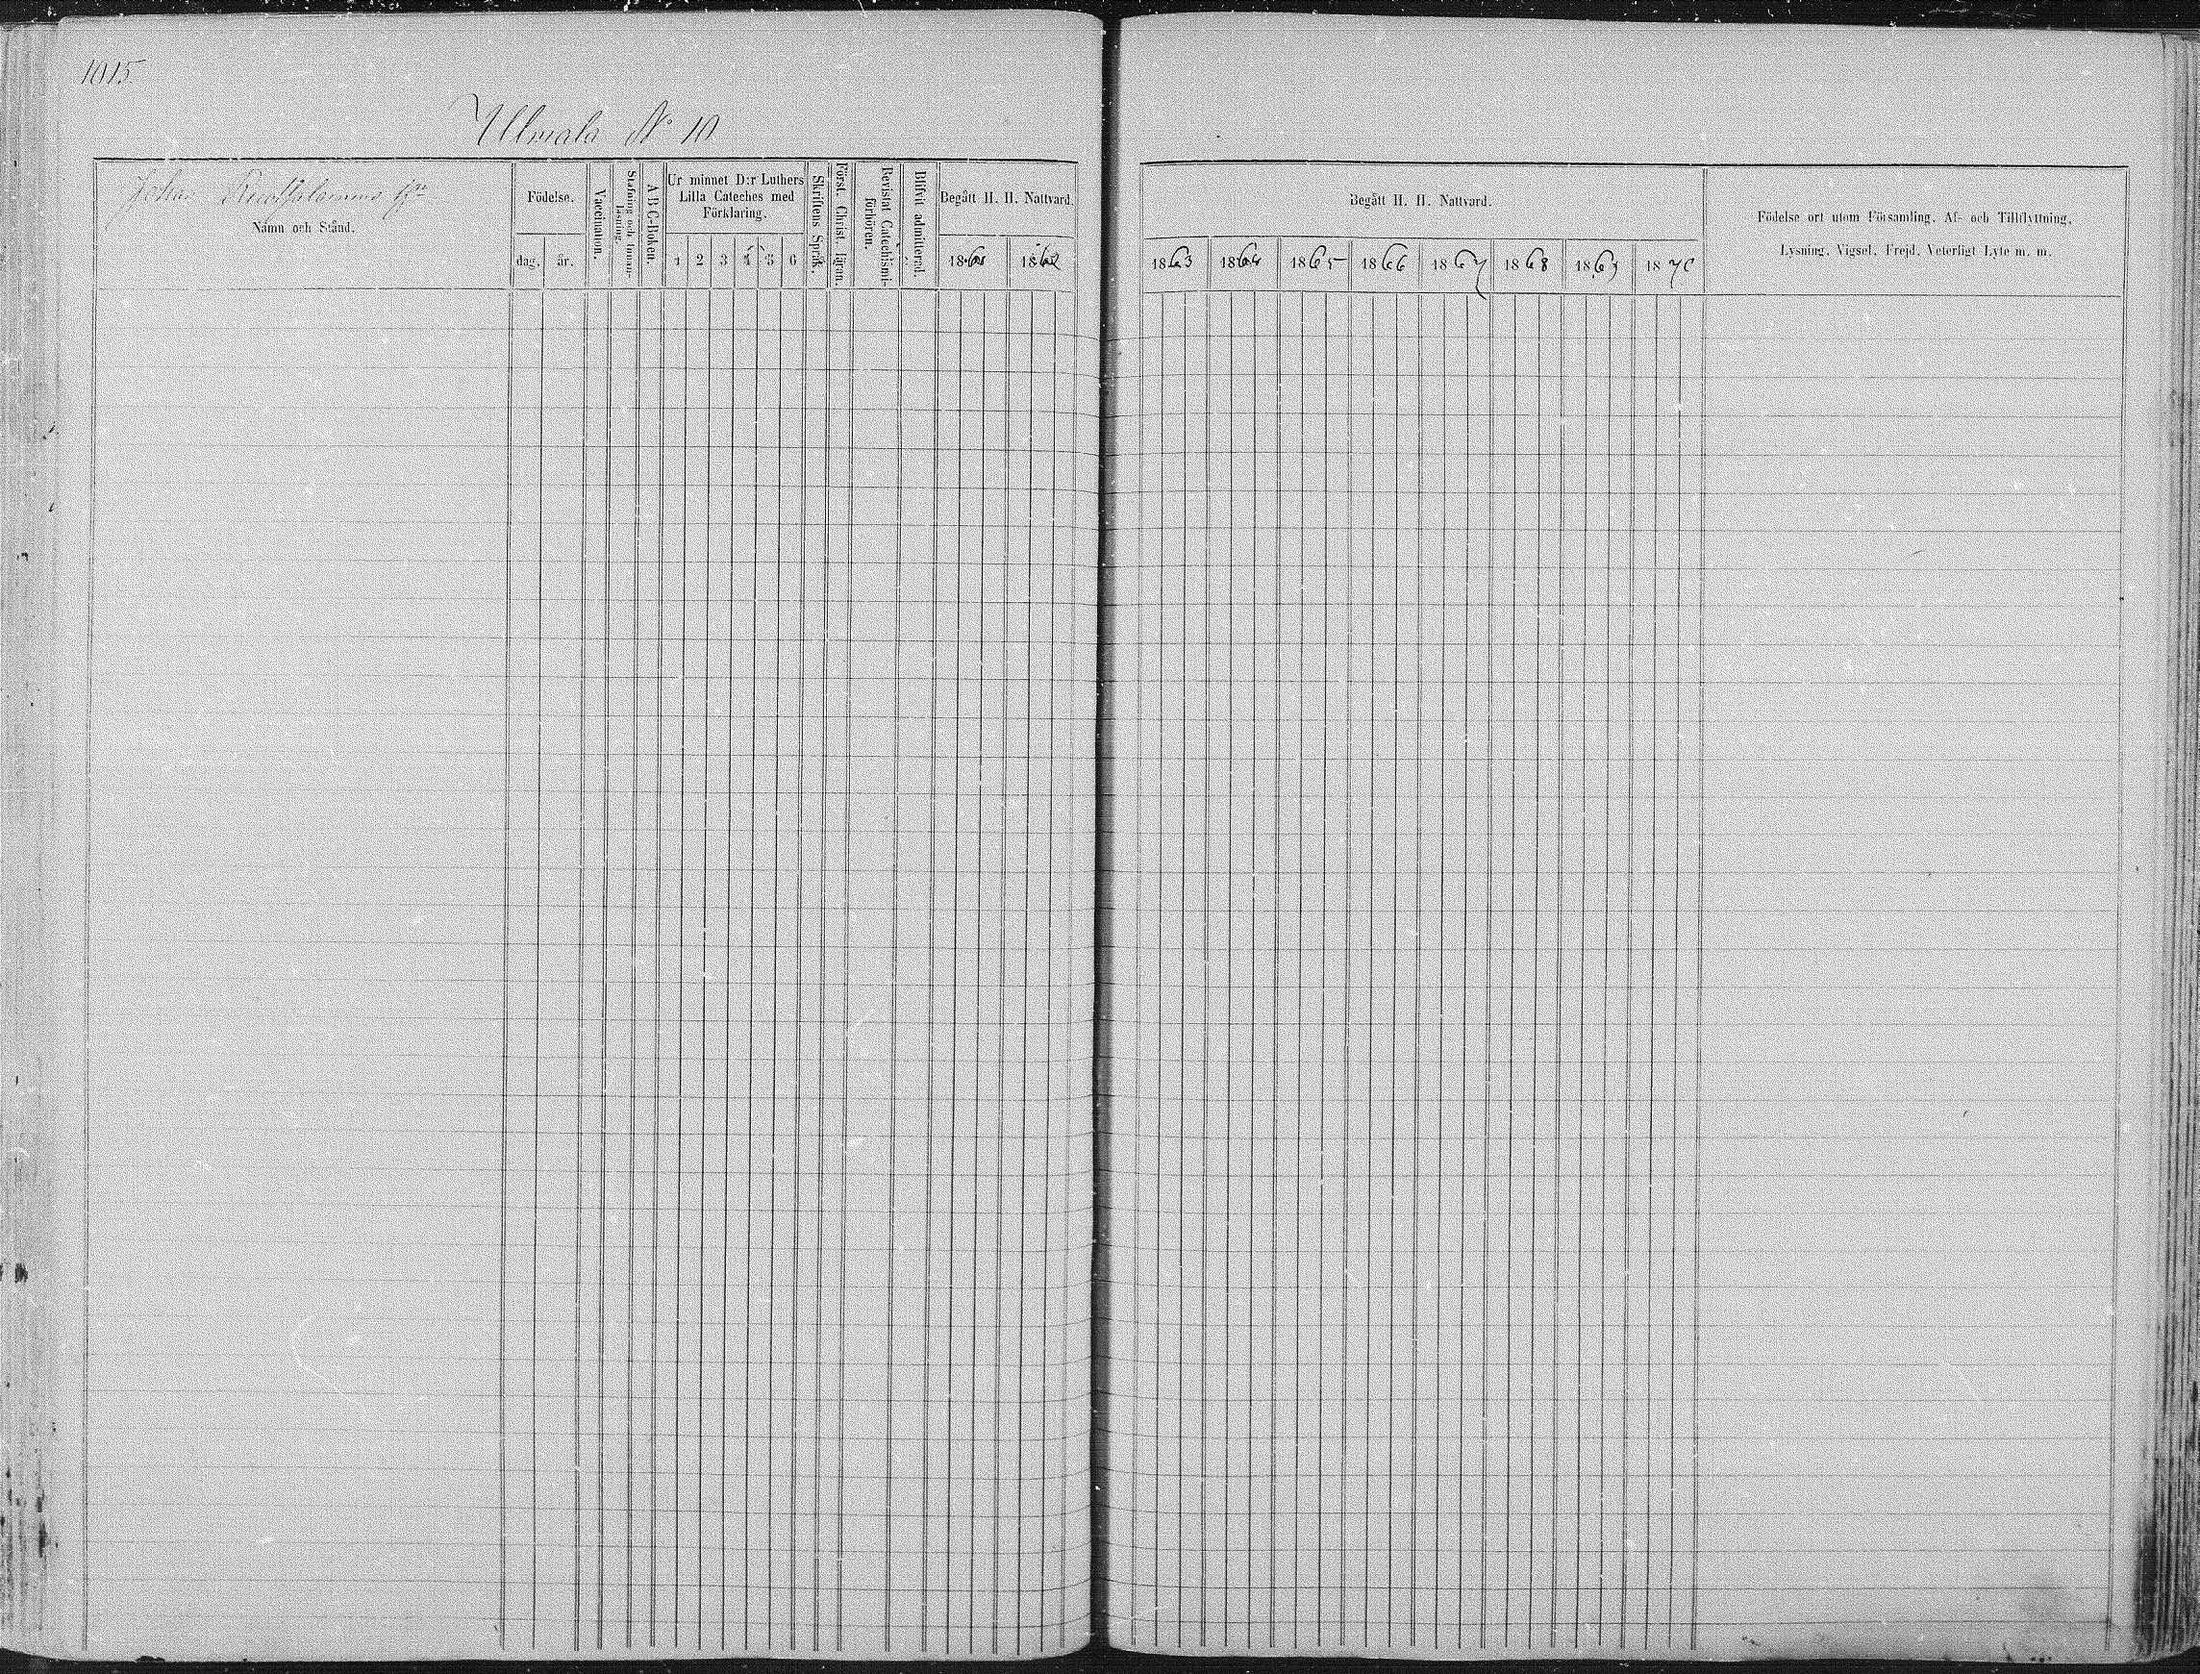 1015.
Ulmala No 10
Johan
Namn och Stånd.
Födelse.
dag. år.
Vaccination.
Stafning och Innanläsning.
A B C-Boken.
Ur minnet D:r Luthers
Lilla Cateches med
Förklaring.
1 2 3 4 5 6
Skriftens Språk.
Först. Christ. läran.
Bevistat Catechismi-
förhören.
Blifvit admitterad.
Begått H. H. Nattvard.
1861 1862
Begått H. H. Nattvard.
1863 1864 1865 1866 1867 1868 1869 1870
Födelse ort utom Församling, Af- och Tillflyttning,
Lysning, Vigsel, Frejd, Veterligt Lyte m. m.